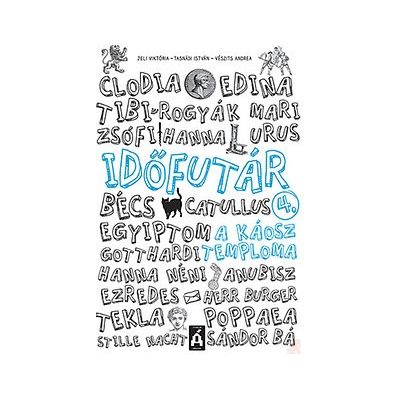 ZELI VIKTÓRIA – TASNÁDI ISTVÁN – VÉSZITS ANDREA
CLODIA EDINA
TIBI-ROGYÁK MARI
ZSÓFI HANNA LURUS
IDŐFUTÁR
BÉCS CATULLUS 4.
EGYIPTOM A KÁOSZ
GOTTHARDI TEMPLOMA
HANNA NÉNI ANUBISZ
EZREDES HERR BURGER
TEKLA POPPAEA
STILLE NACHT Á SÁNDOR BÁ